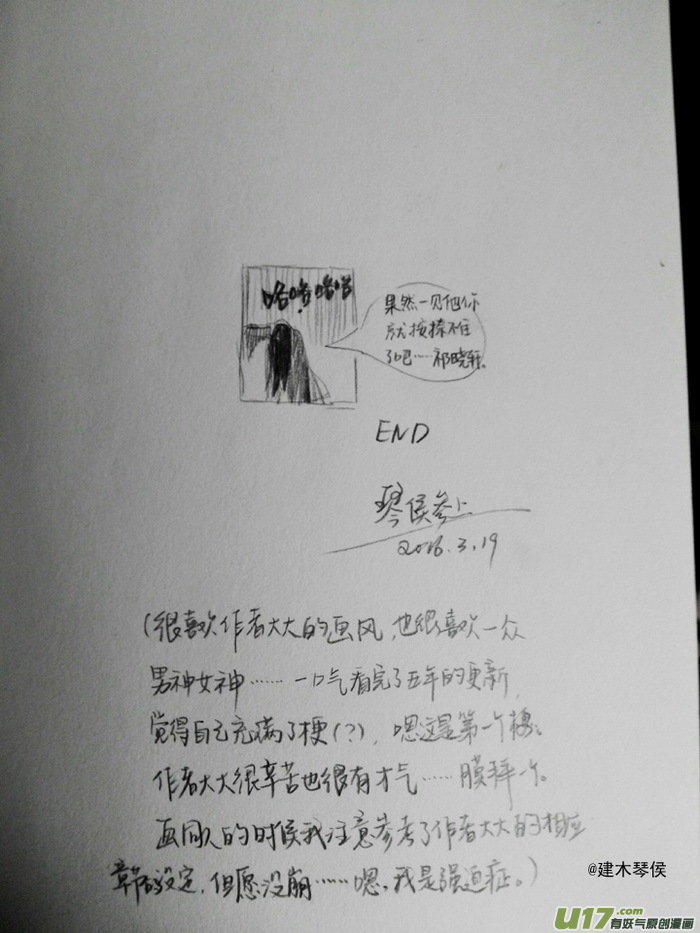 哈哈哈哈
果然一见他你
就按捺不住
了吧……祁晓轩。
END
琴侯参上
2016.3.19
(很喜欢作者大大的画风,也很喜欢一众
男神女神……一口气看完了五年的更新,
觉得自己充满了梗(?),嗯这是第一个梗。
作者大大很辛苦也很有才气……膜拜一个。
画同人的时候我注意参考了作者大大的相应
章节设定,但愿没崩……嗯,我是强迫症。)
@建木琴侯
U17.com
有妖气原创漫画